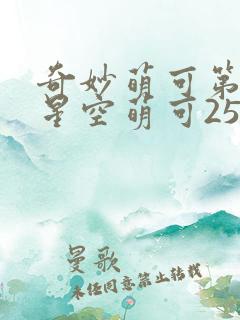 奇妙萌可第
星空萌可25
曼歌
未经同意禁止转载